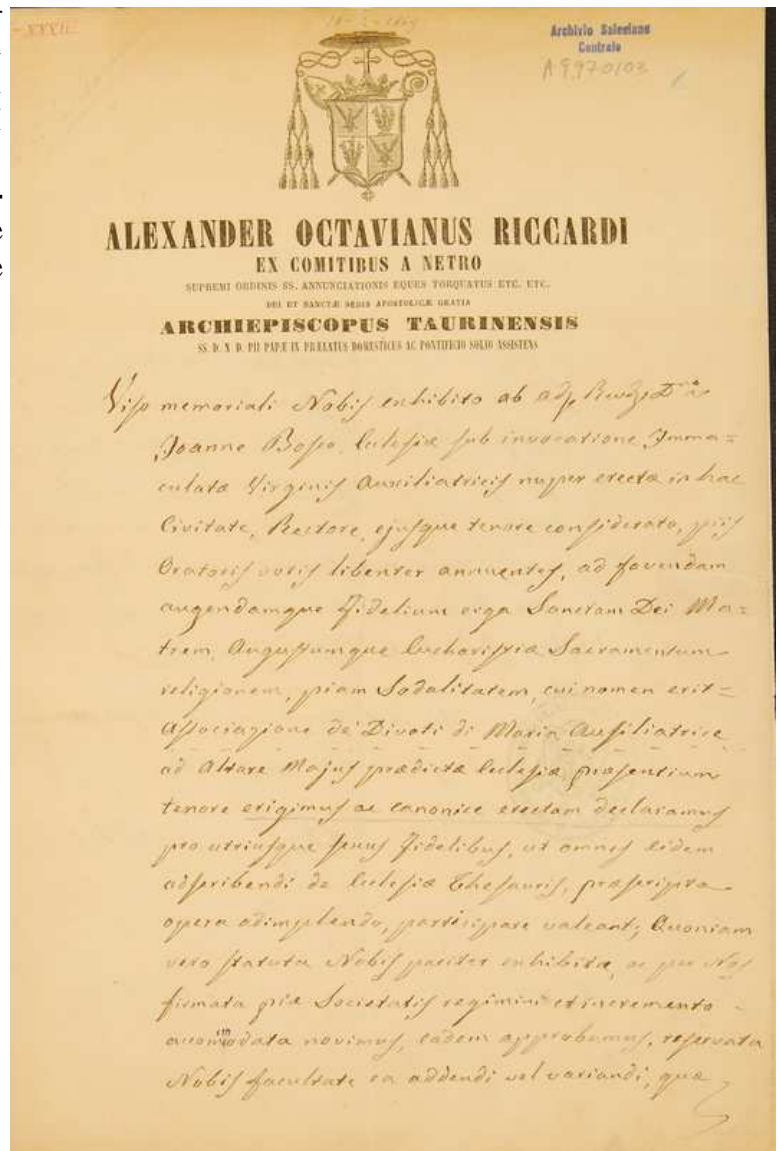 - XXXII -
Archivio Salesiano
Centrale
A 9970103
ALEXANDER OCTAVIANUS RICCARDI
EX COMITIBUS A NETRO
SUPREMI ORDINIS SS. ANNUNCIATIONIS EQUES TORQUATUS ETC. ETC.
DEI ET SANCTÆ SEDIS APOSTOLICÆ GRATIA
ARCHIEPISCOPUS TAURINENSIS
SS. D. N. D. PII PAPÆ IX PRÆLATUS DOMESTICUS AC PONTIFICIO SOLIO ASSISTENS
Viso memoriali Nobis exhibito ab
Joanne Bosco, Ecclesiæ sub invocatione Imma=
culatæ Virginis Auxiliatricis nuper erectæ in hac
Civitate, Rectore, ejusque tenore considerato, piis
Oratoris votis libenter annuentes, ad fovendam
augendamque Fidelium erga Sanctam Dei Ma=
trem, Augustumque Eucharistiæ Sacramentum
religionem, piam Sodalitatem, cui nomen erit=
Associazione de' Divoti di Maria Ausiliatrice
ad Altare Majus prædictæ Ecclesiæ, præsentium
tenore erigimus ac canonice erectam declaramus
pro utriusque sexus Fidelibus, ut omnes eidem
adscribendi de Ecclesiæ Thesauris, præscripta
opera adimplendo, participare valeant; Quoniam
vero statuta Nobis pariter exhibita, ac per Nos
firmata piæ Societatis regimini et incremento
accomodata novimus, eadem approbamus, reservata
Nobis facultate ea addendi vel variandi, quæ